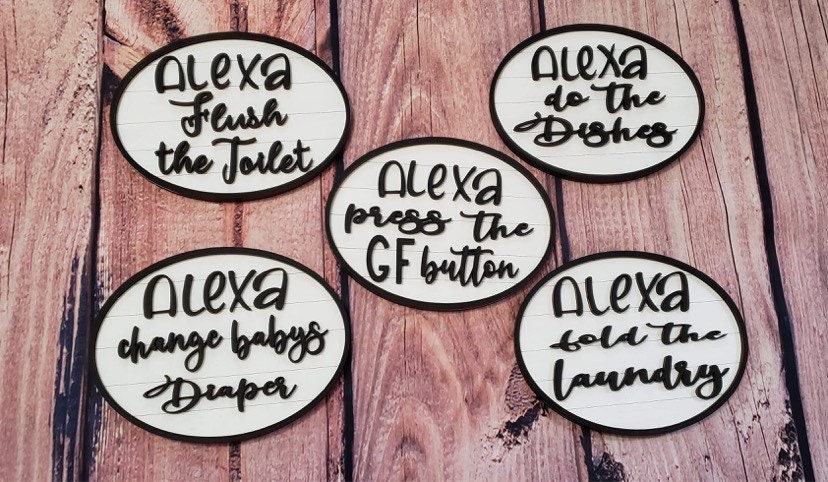 ALexa
Flush
the Toilet
ALexa
do the
Dishes
ALexa
press the
GF button
ALexa
change babys
Diaper
ALexa
fold the
laundry